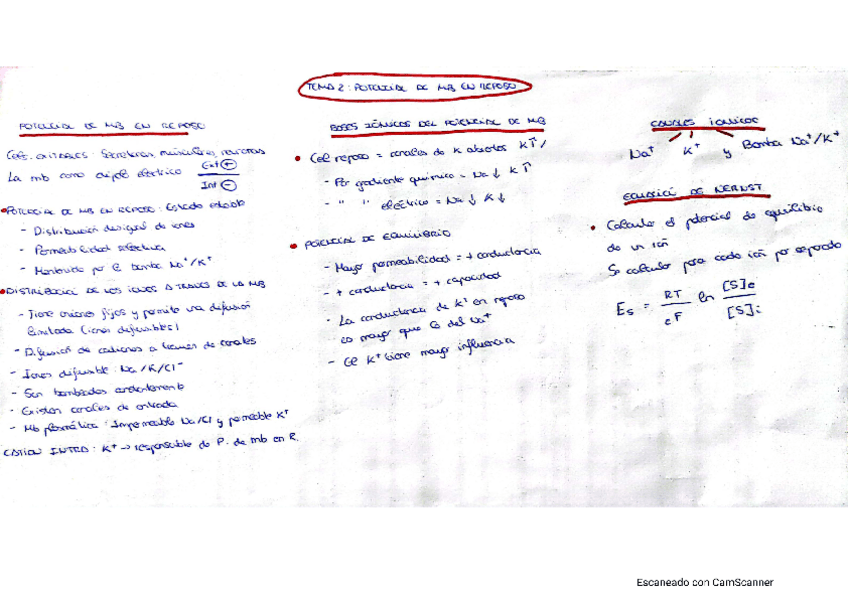 TEMA 2: POTENCIAL DE MB EN REPOSO
POTENCIAL DE MB EN REPOSO
Cels. excitables: Secretoras, musculares, neuronas
La mb como dipolo eléctrico Ext +
Int -
• POTENCIAL DE MB EN REPOSO: Estado estable
- Distribución desigual de iones
- Permeabilidad selectiva
- Mantenido por la bomba Na+/K+
• DISTRIBUCIÓ DE LOS IONES A TRAVES DE LA MB
- Tiene aniones fijos y permite una difusión
limitada (iones difusibles)
- Difusión de cationes a traves de canales
- Iones difusible: Na/K/Cl-
- Son bombeados
- Existen canales de entrada
- Mb plasmática: Impermeable Na/Cl y permeable K+
CATION INTRA: K+ → responsable de P. de mb en R.
BASES IÓNICAS DEL POTENCIAL DE MB
• Cel reposo = canales de K abiertos K↑/
- Per gradiente químico = Na↓ K↑
- " " eléctrico = Na↓ K↓
• POTENCIAL DE EQUILIBRIO
- Mayor permeabilidad = + conductancia
- + conductancia = + capacidad
- La conductancia de K+ en reposo
es mayor que la del Na+
- El K+ tiene mayor influencia
CANALES IONICOS
Na+ K+ y Bomba Na+/K+
ECUACIÓ DE NERNST
• Calcular el potencial de equilibrio
de un ión
Se calcular para cada ión por separado
Es = RT/cF ln [S]e/[S]i
Escaneado con CamScanner